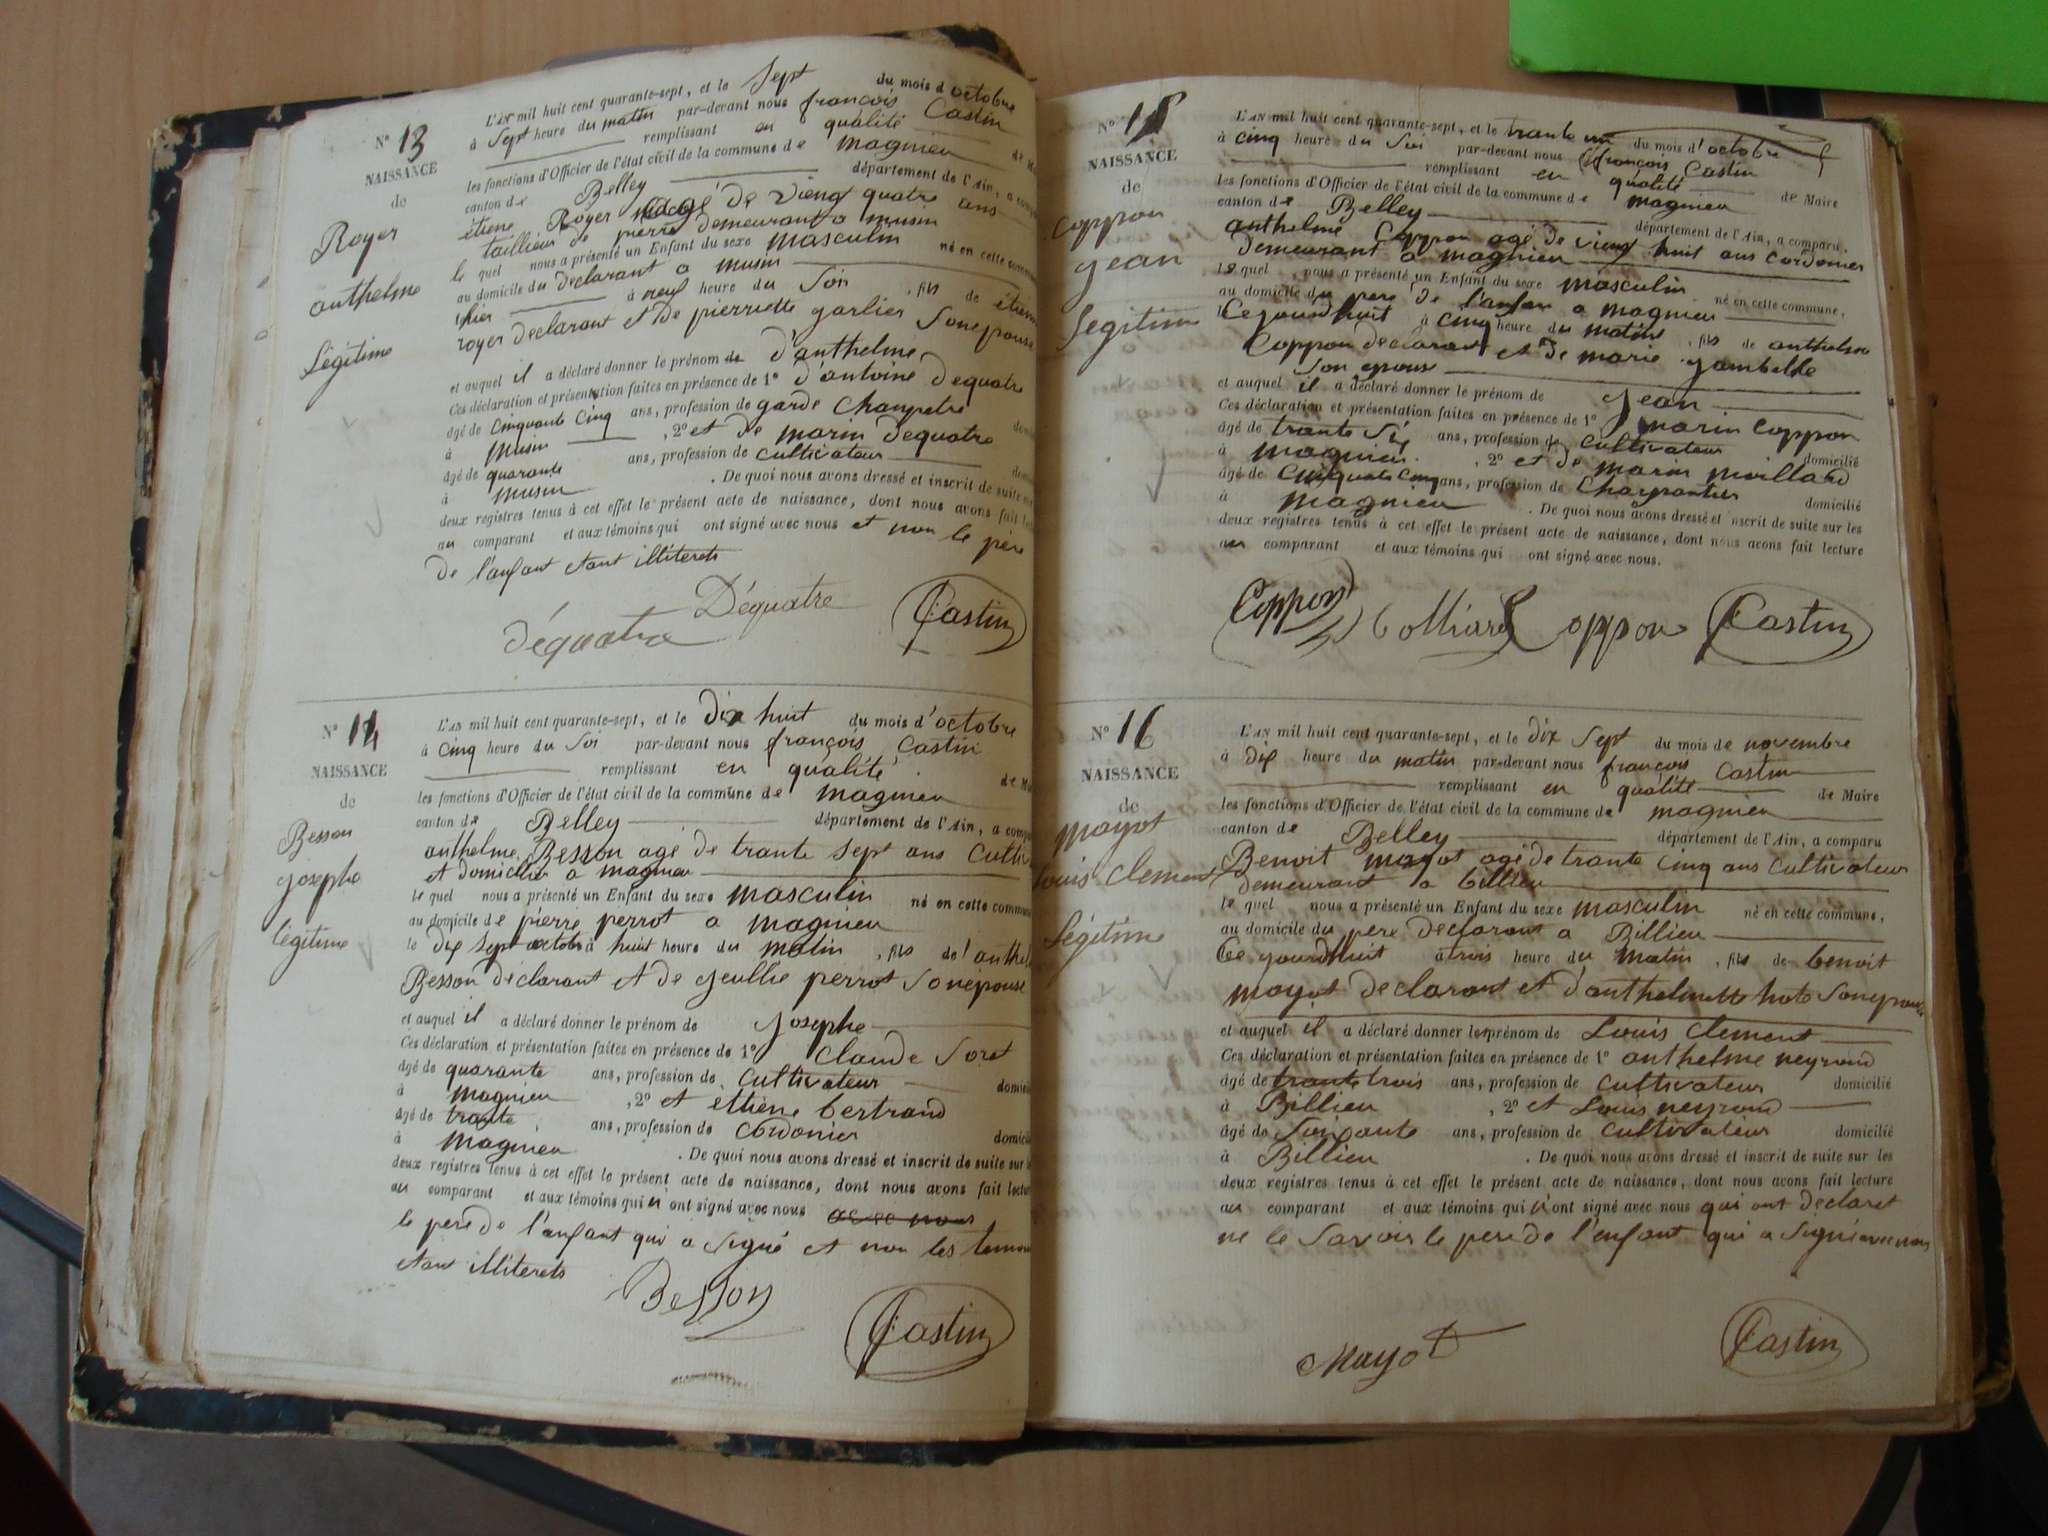 N° 13
NAISSANCE
de
Royer
anthelme
Légitime
L'AN mil huit cent quarante-sept, et le Sept du mois d'octobre
à Sept heure du matin par-devant nous françois Castin
remplissant en qualité de M
les fonctions d'Officier de l'état civil de la commune de magnieu
canton de Belley département de l'Ain, a comp
étiene Royer agé de vieng quatre ans
taillieur de pierre demeurant a musin
le quel nous a présenté un Enfant du sexe masculin né en cette commune
au domicile du declarant a musin
hier à neuf heure du Soir, fils de étiene
royer declarant et de pierriette garlier Son epouse
et auquel il a déclaré donner le prénom de d'anthelme
Ces déclaration et présentation faites en présence de 1° d'antoine dequatre
âgé de cinquante cinq ans, profession de garde champetre
à musin, 2° et de marin dequatre
âgé de quarante ans, profession de cultivateur
à musin. De quoi nous avons dressé et inscrit de suite sur
deux registres tenus à cet effet le présent acte de naissance, dont nous avons fait lec
au comparant et aux témoins qui ont signé avec nous et non le père
de l'anfant etant illiterets
Déquatre
déquatre
Castin
N° 14
NAISSANCE
de
Besson
josephe
légitime
L'AN mil huit cent quarante-sept, et le Dix huit du mois d'octobre
à cinq heure du Soi par-devant nous françois Castin
remplissant en qualité de M
les fonctions d'Officier de l'état civil de la commune de magnieu
canton de Belley département de l'Ain, a compa
anthelme Besson agé de trante sept ans Cultiv
et domicilié a magnieu
le quel nous a présenté un Enfant du sexe masculin né en cette commune
au domicile de pierre perrot a magnieu
le Dix sept octobre à huit heure du matin, fils de l'anthel
Besson déclarant et de jeullie perrot Son épouse
et auquel il a déclaré donner le prénom de josephe
Ces déclaration et présentation faites en présence de 1° Claude Soret
âgé de quarante ans, profession de Cultivateur domici
à magnieu, 2° et ettiene bertrand
âgé de trante ans, profession de cordonier domici
à magnieu. De quoi nous avons dressé et inscrit de suite sur le
deux registres tenus à cet effet le présent acte de naissance, dont nous avons fait lectur
au comparant et aux témoins qui n'ont signé avec nous avec nous
le pere de l'anfant qui a signé et non les temoin
etant illiterets
Besson
Castin
N° 15
NAISSANCE
de
Coppon
jean
Legitime
L'AN mil huit cent quarante-sept, et le trante un du mois d'octobre
à cinq heure du Soi par-devant nous françois Castin
remplissant en qualité de Maire
les fonctions d'Officier de l'état civil de la commune de magnieu
canton de Belley département de l'Ain, a comparu
anthelme Coppon agé de vieng huit ans cordonier
demeurant a magnieu
le quel nous a présenté un Enfant du sexe masculin né en cette commune,
au domicile du pere de l'anfan a magnieu
le Cejourdhuit à cinq heure du matine, fils de anthelme
Coppon declarant et de marie gambelle
Son epouse
et auquel il a déclaré donner le prénom de jean
Ces déclaration et présentation faites en présence de 1° marin Coppon
âgé de trante Six ans, profession de cultivateur domicilié
à magnieu, 2° et de marin
âgé de Cinquate cinq ans, profession de Charpantier domicilié
à magnieu. De quoi nous avons dressé et inscrit de suite sur les
deux registres tenus à cet effet le présent acte de naissance, dont nous avons fait lecture
au comparant et aux témoins qui ont signé avec nous.
Coppon Coppon Castin
N° 16
NAISSANCE
de
mayot
Louis clement
Légitime
L'AN mil huit cent quarante-sept, et le dix Sept du mois de novembre
à dix heure du matin par-devant nous françois Castin
remplissant en qualité de Maire
les fonctions d'Officier de l'état civil de la commune de magnieu
canton de Belley département de l'Ain, a comparu
Benoit mayot agé de trante cinq ans Cultivateur
demeurant a billieu
le quel nous a présenté un Enfant du sexe masculin né en cette commune,
au domicile du pere declarant a Billieu
le Ce jourdhuit à trois heure du matin, fils de benoit
mayot declarant et d'anthelmette hote Son epouse
et auquel il a déclaré donner les prénom de Louis clement
Ces déclaration et présentation faites en présence de 1° anthelme neyrond
âgé de trante trois ans, profession de Cultivateur domicilié
à Billieu, 2° et Louis neyrond
âgé de Soixante ans, profession de cultivateur domicilié
à Billieu. De quoi nous avons dressé et inscrit de suite sur les
deux registres tenus à cet effet le présent acte de naissance, dont nous avons fait lecture
au comparant et aux témoins qui n'ont signé avec nous qui ont declaret
ne le Savoir le pere de l'enfant qui a signé avec nous
Mayot
Castin